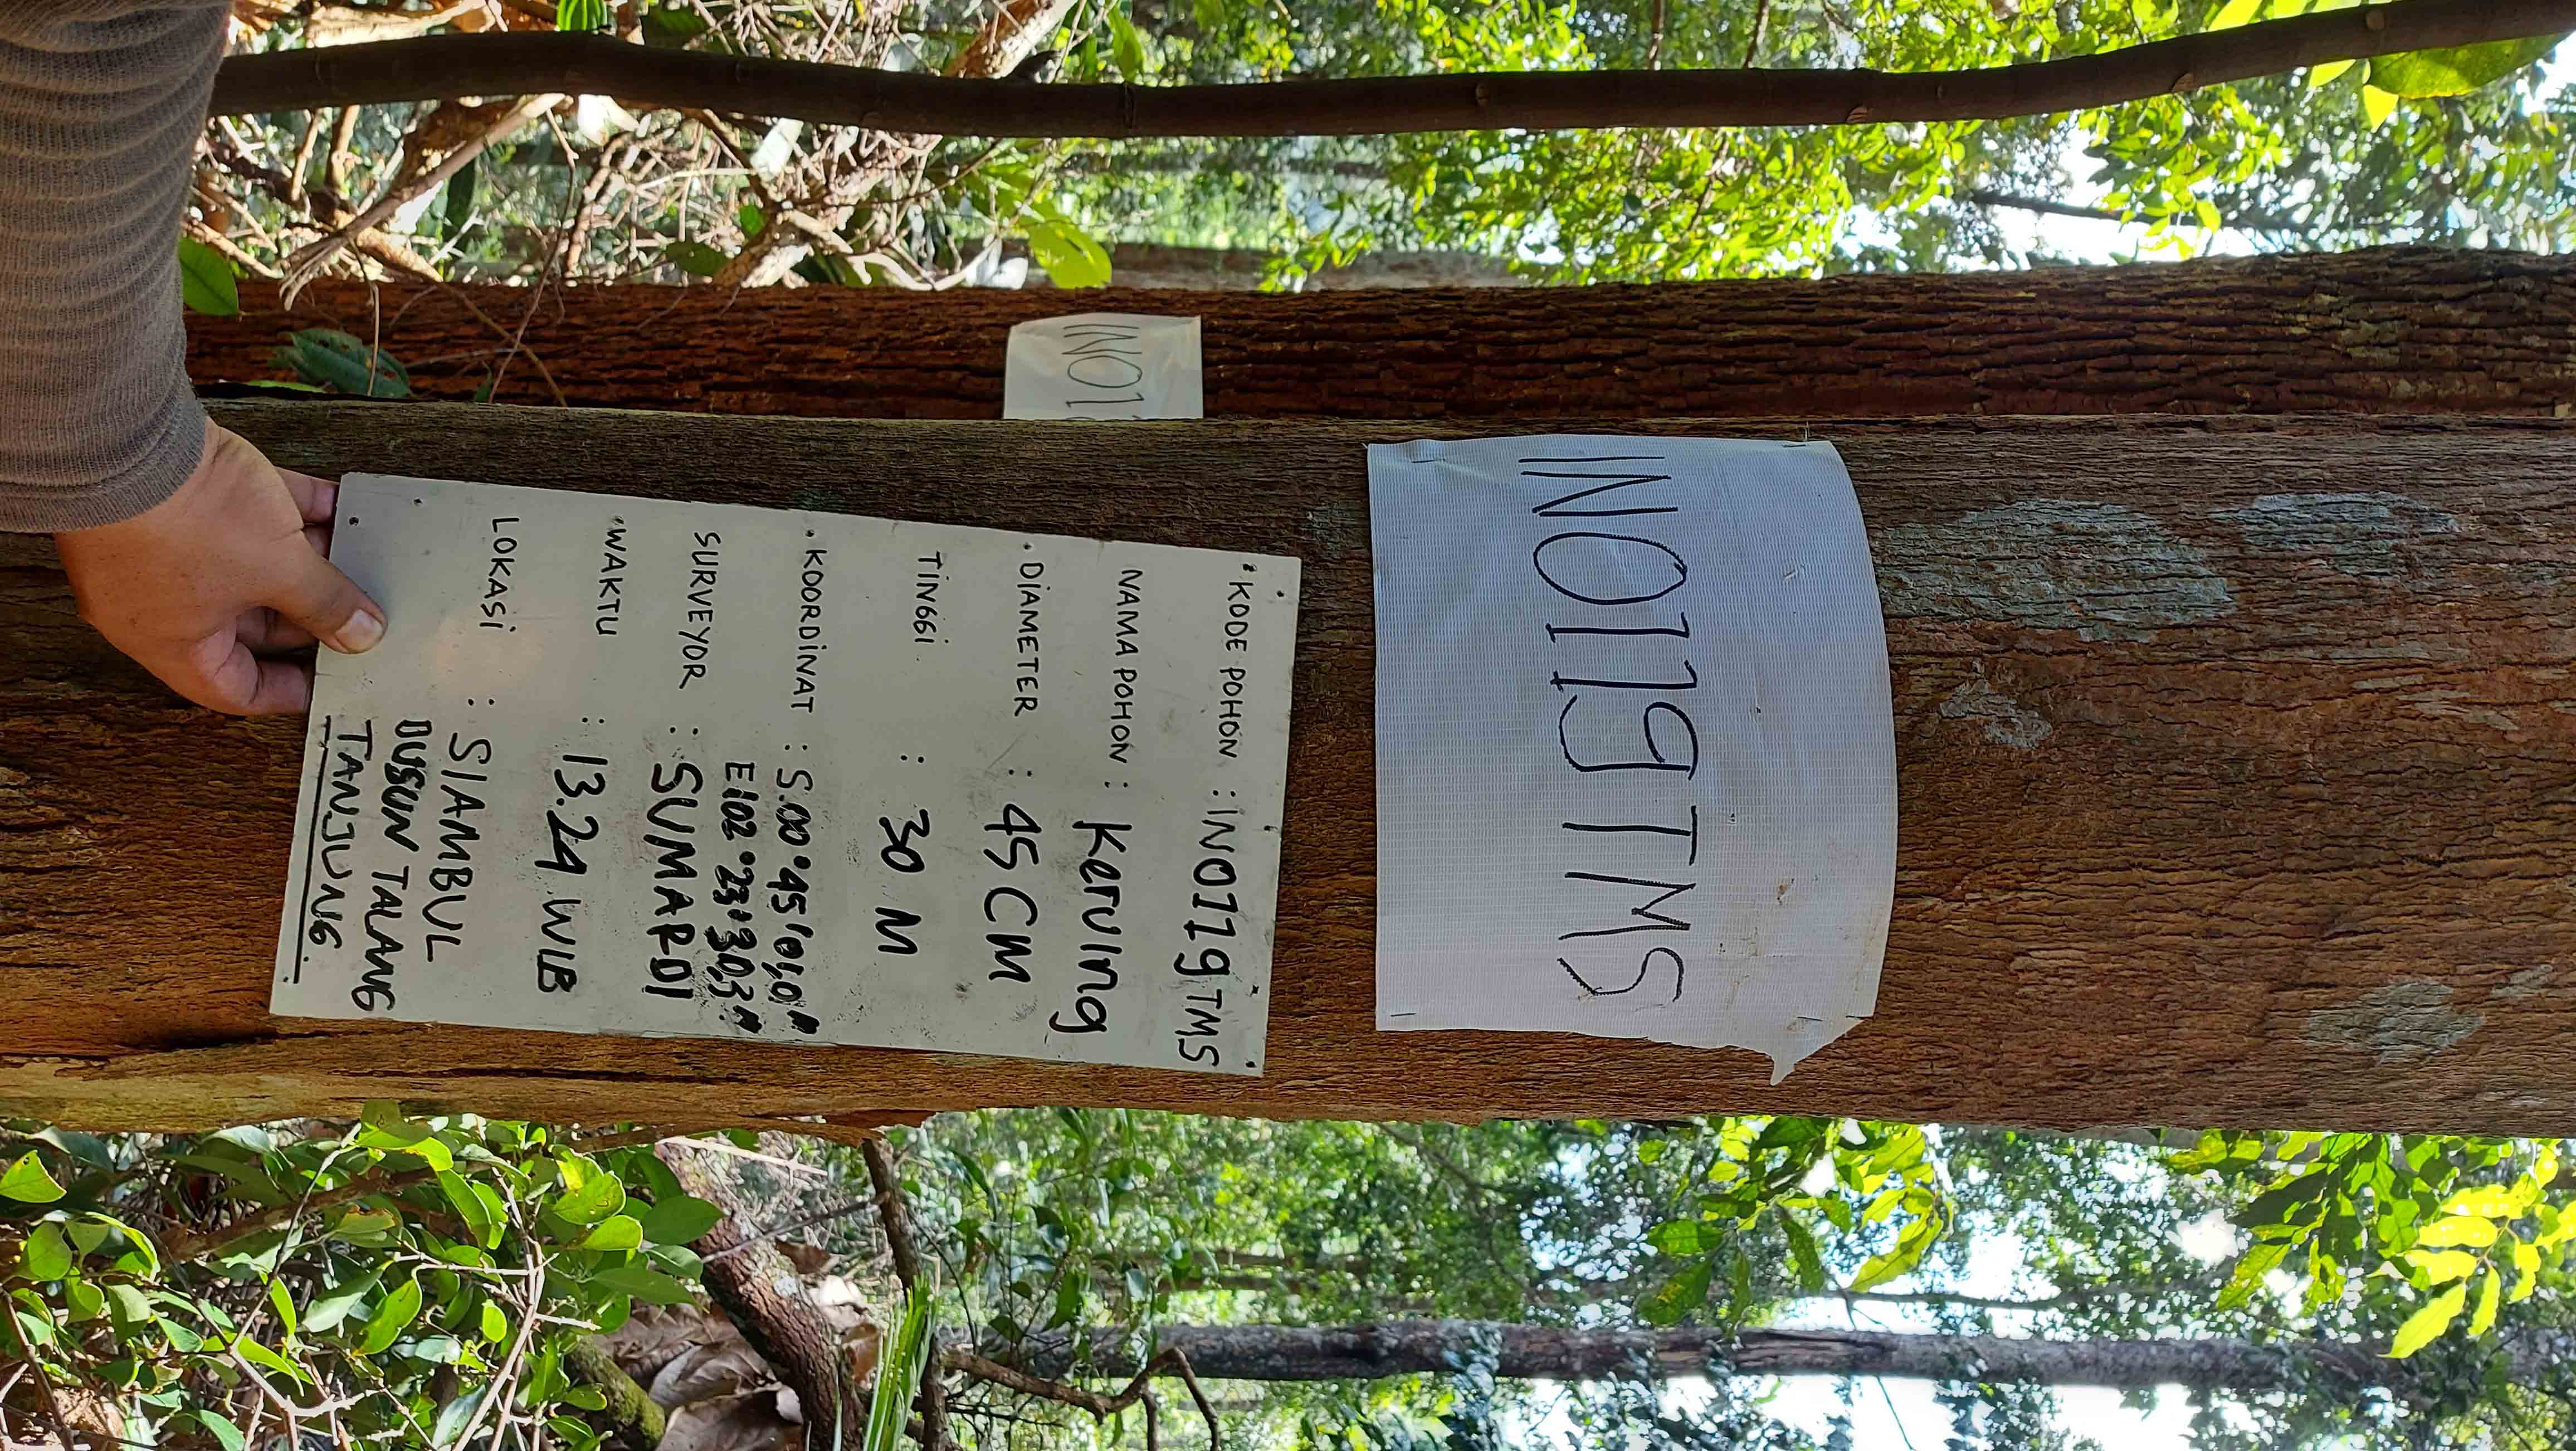 INO119TMS
KODE POHON : INO119TMS
NAMA POHON : Keruing
DIAMETER : 45 CM
TINGGI : 30 M
KOORDINAT : S.00°45'01,0"
E102°23'30,3"
SURVEYOR : SUMARDI
WAKTU : 13.24 WIB
LOKASI : SIAMBUL
DUSUN TALANG
TANJUNG.
INO1